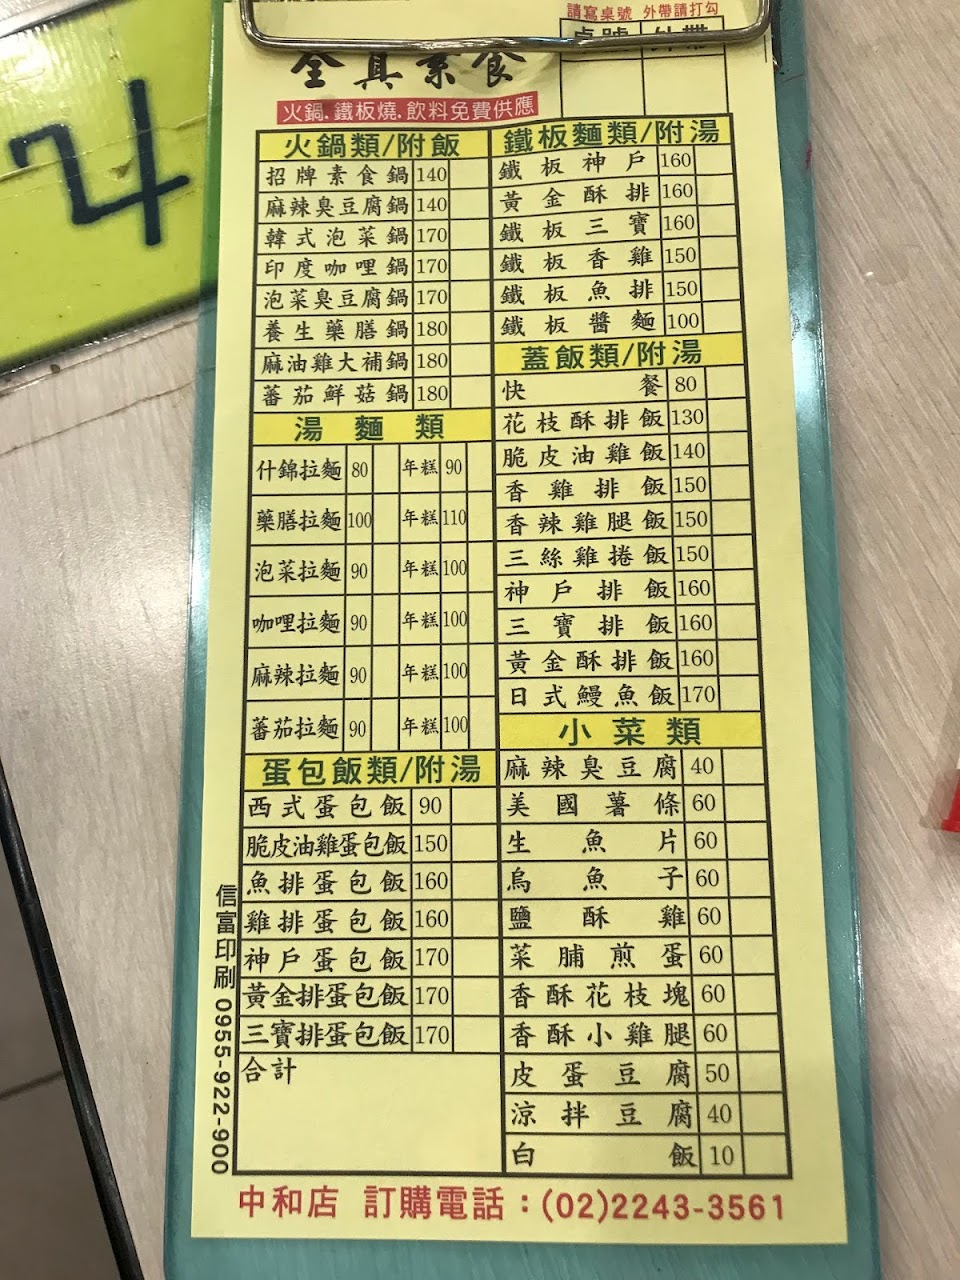 請寫桌號 外帶請打勾
桌號 外帶
全真素食
火鍋.鐵板燒.飲料免費供應
4
火鍋類/附飯
招牌素食鍋 140
麻辣臭豆腐鍋 140
韓式泡菜鍋 170
印度咖哩鍋 170
泡菜臭豆腐鍋 170
養生藥膳鍋 180
麻油雞大補鍋 180
蕃茄鮮菇鍋 180
湯麵類
什錦拉麵 80 年糕 90
藥膳拉麵 100 年糕 110
泡菜拉麵 90 年糕 100
咖哩拉麵 90 年糕 100
麻辣拉麵 90 年糕 100
蕃茄拉麵 90 年糕 100
蛋包飯類/附湯
西式蛋包飯 90
脆皮油雞蛋包飯 150
魚排蛋包飯 160
雞排蛋包飯 160
神戶蛋包飯 170
黃金排蛋包飯 170
三寶排蛋包飯 170
合計
鐵板麵類/附湯
鐵板神戶 160
黃金酥排 160
鐵板三寶 160
鐵板香雞 150
鐵板魚排 150
鐵板醬麵 100
蓋飯類/附湯
快餐 80
花枝酥排飯 130
脆皮油雞飯 140
香雞排飯 150
香辣雞腿飯 150
三絲雞捲飯 150
神戶排飯 160
三寶排飯 160
黃金酥排飯 160
日式鰻魚飯 170
小菜類
麻辣臭豆腐 40
美國薯條 60
生魚片 60
烏魚子 60
鹽酥雞 60
菜脯煎蛋 60
香酥花枝塊 60
香酥小雞腿 60
皮蛋豆腐 50
涼拌豆腐 40
白飯 10
信富印刷 0955-922-900
中和店 訂購電話：(02)2243-3561